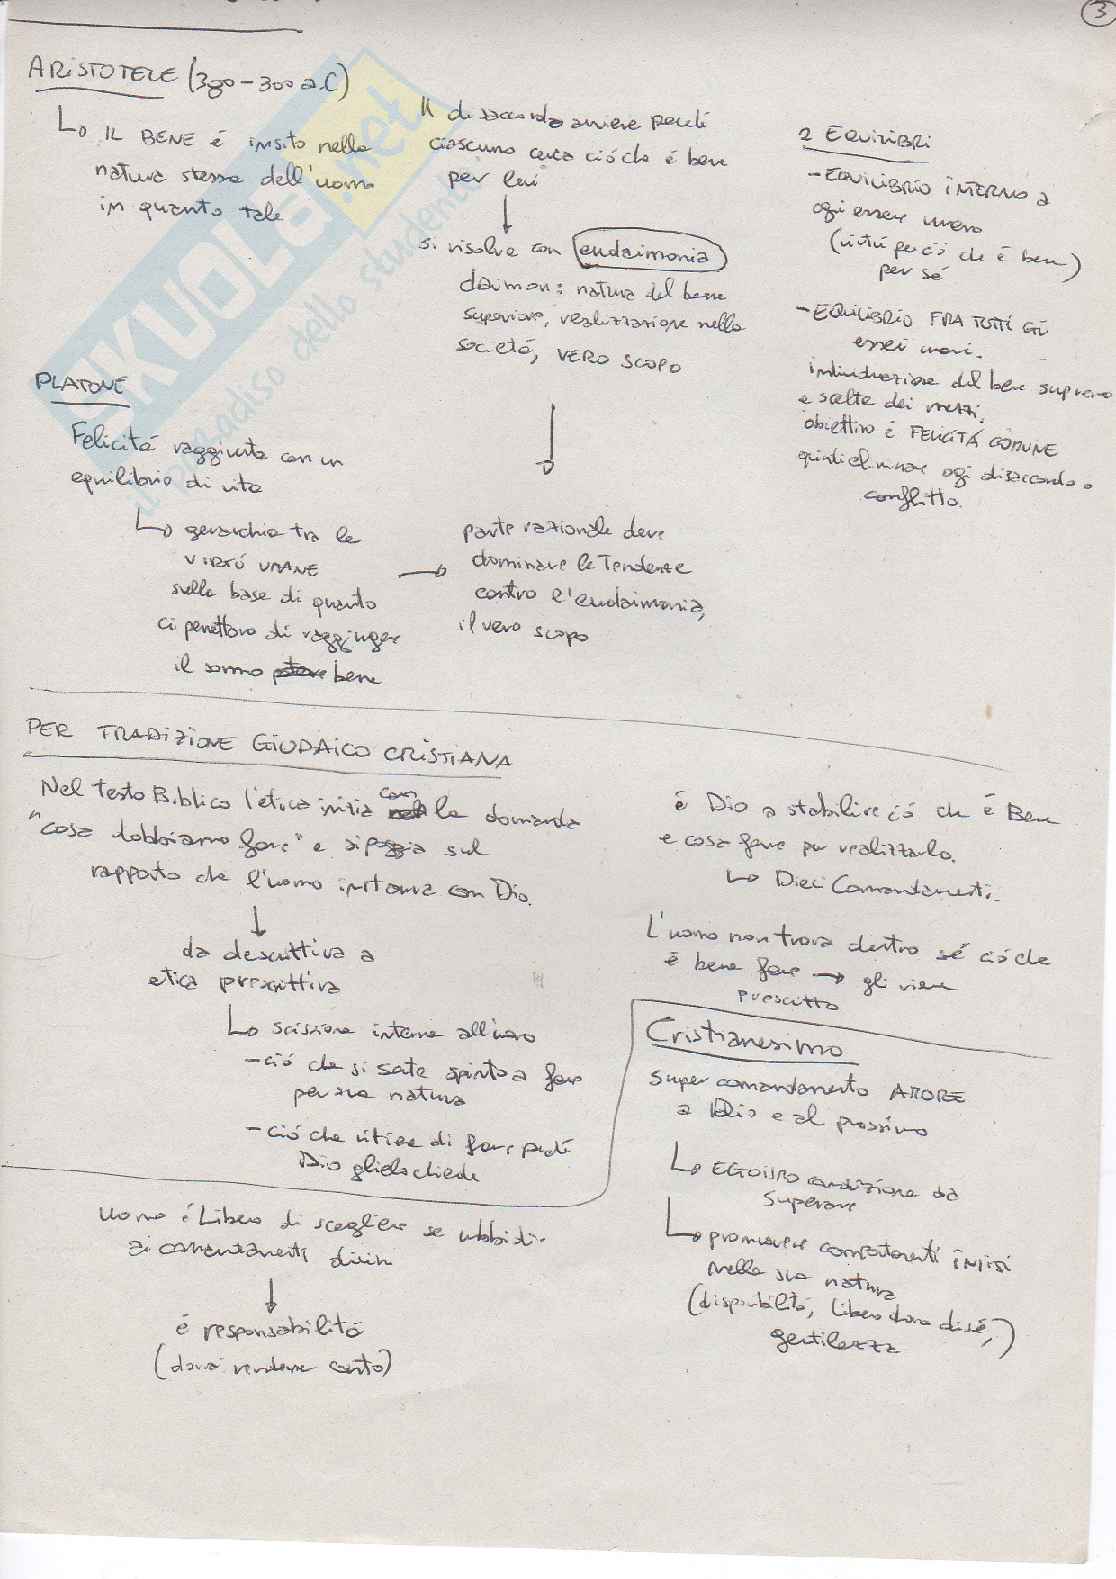 3
ARISTOTELE (380-300 a.C)
↳ IL BENE é insito nella
natura stessa dell'uomo
in quanto tale
Il disaccordo avviene perché
ciascuno cerca ció che é bene
per lui
↓
si risolve con eudaimonia
daimon: natura del bene
superiore, realizzazione nella
societá, VERO SCOPO
↓
2 EQUILIBRI
- EQUILIBRIO INTERNO a
ogni essere umano
(virtú per ció che é bene)
per sé
- EQUILIBRIO FRA TUTTI GLI
esseri umani.
individuazione del bene supremo
e scelta dei mezzi.
obiettivo é FELICITÁ COMUNE
quindi eliminare ogni disaccordo o
conflitto.
PLATONE
Felicitá raggiunta con un
equilibrio di vita
↳ gerarchia tra le
VIRTÚ UMANE
sulla base di quanto
ci permettono di raggiungere
il sommo bene
→ parte razionale deve
dominare le Tendenze
contro l'eudaimonia,
il vero scopo
PER TRADIZIONE GIUDAICO CRISTIANA
Nel testo Biblico l'etica inizia con la domanda
"cosa dobbiamo fare" e si poggia sul
rapporto che l'uomo instaura con Dio.
↓
da descrittiva a
etica prescrittiva
↳ scissione interna all'uomo
- ció che si sente spinto a fare
per sua natura
- ció che ritiene di fare perché
Dio glielo chiede
é Dio a stabilire ció che é Bene
e cosa fare per realizzarlo.
↳ Dieci Comandamenti.
L'uomo non trova dentro sé ció che
é bene fare → gli viene
prescritto
Uomo é Libero di scegliere se ubbidire
ai comandamenti divini
↓
é responsabilitá
(dovrá rendere conto)
Cristianesimo
Super comandamento AMORE
a Dio e al prossimo
↳ EGOISMO condizione da
superare
↳ promuovere comportamenti INSITI
nella sua natura
(disponibilitá, libero dono di sé,)
gentilezza
SKUOLA.net
il paradiso dello studente